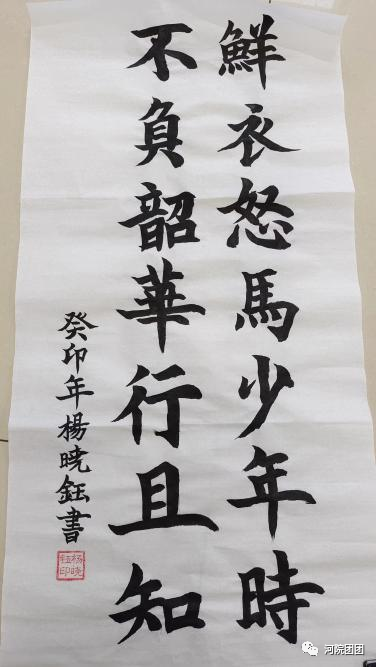 鮮衣怒馬少年時
不負韶華行且知
癸卯年楊曉鈺書
河院团团